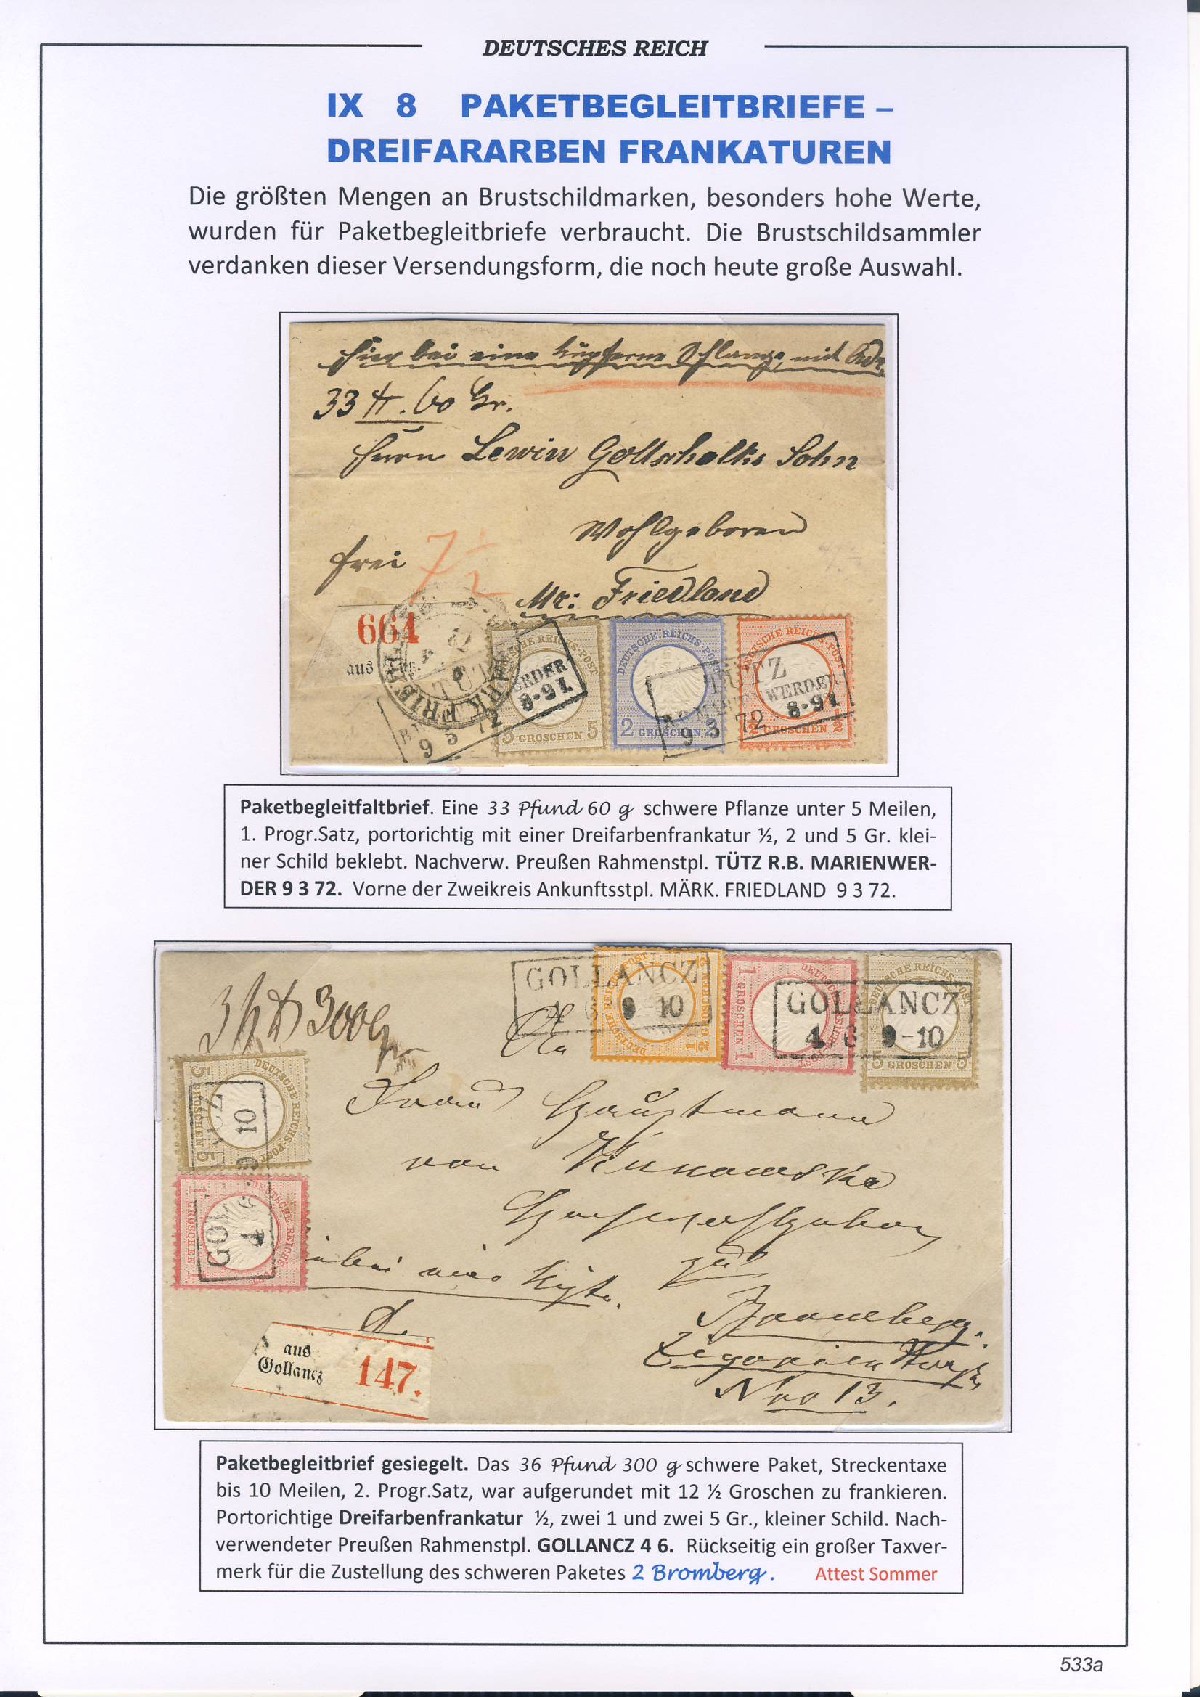 DEUTSCHES REICH
IX 8 PAKETBEGLEITBRIEFE –
DREIFARARBEN FRANKATUREN
Die größten Mengen an Brustschildmarken, besonders hohe Werte,
wurden für Paketbegleitbriefe verbraucht. Die Brustschildsammler
verdanken dieser Versendungsform, die noch heute große Auswahl.
hier bei eine Schlange mit
33 60 Gr.
Herrn Lewin Gottschalks Sohn
Wohlgeboren
frei 7½
Mk: Friedland
664
aus
DEUTSCHE REICHS-POST
5 GROSCHEN 5
2 GROSCHEN 2
½ GROSCHEN ½
TÜTZ
MARIENWERDER
9 3 72 8-9 V.
9 3 72 8-9 V.
Paketbegleitfaltbrief. Eine 33 Pfund 60 g schwere Pflanze unter 5 Meilen,
1. Progr.Satz, portorichtig mit einer Dreifarbenfrankatur ½, 2 und 5 Gr. klei-
ner Schild beklebt. Nachverw. Preußen Rahmenstpl. TÜTZ R.B. MARIENWER-
DER 9 3 72. Vorne der Zweikreis Ankunftsstpl. MÄRK. FRIEDLAND 9 3 72.
GOLLANCZ
4 6 9-10
GOLLANCZ
4 6 9-10
An
Frau Hauptmann
von
zu
Bromberg.
Nro 13.
aus
Gollancz
147.
Paketbegleitbrief gesiegelt. Das 36 Pfund 300 g schwere Paket, Streckentaxe
bis 10 Meilen, 2. Progr.Satz, war aufgerundet mit 12 ½ Groschen zu frankieren.
Portorichtige Dreifarbenfrankatur ½, zwei 1 und zwei 5 Gr., kleiner Schild. Nach-
verwendeter Preußen Rahmenstpl. GOLLANCZ 4 6. Rückseitig ein großer Taxver-
merk für die Zustellung des schweren Paketes 2 Bromberg. Attest Sommer
533a